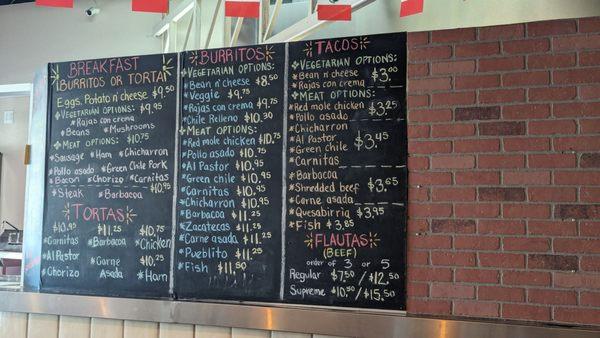 BREAKFAST
(BURRITOS OR TORTA)
Eggs, Potato n' cheese $9.50
VEGETARIAN OPTIONS: $9.95
Rajas con crema
Beans Mushrooms
MEAT OPTIONS: $10.75
Sausage Ham Chicharron
Pollo asado Green Chile Pork
Bacon Chorizo Carnitas
Steak Barbacoa $10.95
TORTAS
$10.95 $11.25 $10.75
Carnitas Barbacoa Chicken
Al Pastor Carne $10.25
Chorizo Asada Ham
BURRITOS
VEGETARIAN OPTIONS:
Bean n' cheese $8.50
Veggie $9.75
Rajas con crema $9.75
Chile Relleno $10.30
MEAT OPTIONS:
Red mole chicken $10.75
Pollo asado $10.75
Al Pastor $10.95
Green chile $10.95
Carnitas $10.95
Chicharron $10.95
Barbacoa $11.25
Zacatecas $11.25
Carne asada $11.25
Pueblito $11.25
Fish $11.50
TACOS
VEGETARIAN OPTIONS:
Bean n' cheese $3.00
Rajas con crema
MEAT OPTIONS:
Red mole chicken $3.25
Pollo asado
Chicharron
Al Pastor $3.45
Green chile
Carnitas
Barbacoa
Shredded beef $3.65
Carne asada
Quesabirria $3.95
Fish $3.85
FLAUTAS
(BEEF)
order of 3 or 5
Regular $7.50 / $12.50
Supreme $10.50 / $15.50